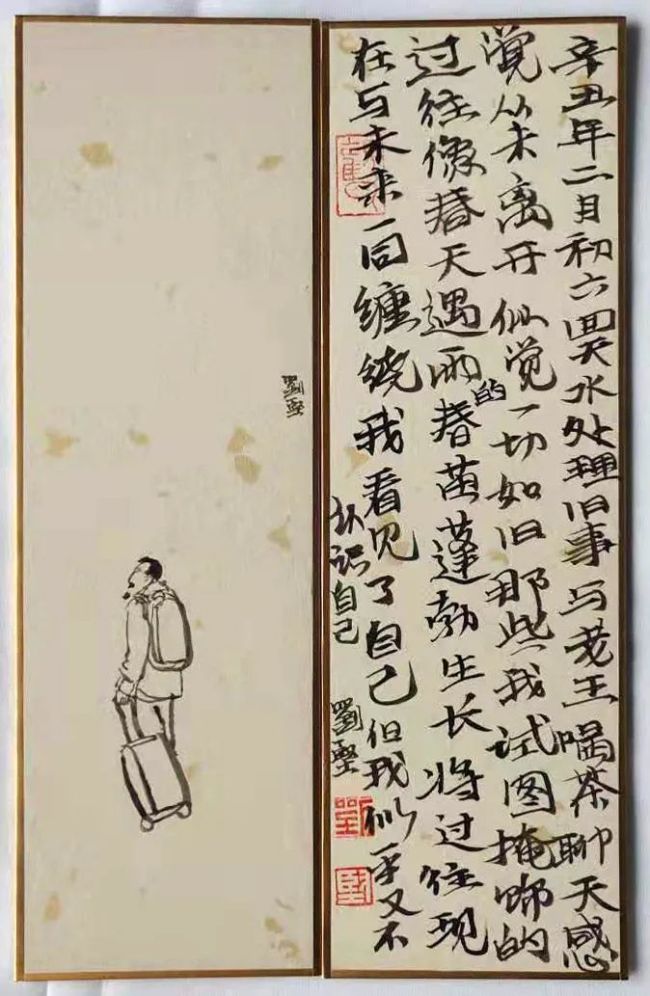 辛丑年二月初六回天水处理旧事与老王喝茶聊天感
觉从未离开似觉一切如旧那些我试图掩饰的
过往像春天遇雨的春苗蓬勃生长将过往现
在与未来一同缠绕我看见了自己但我似乎又不
认识自己